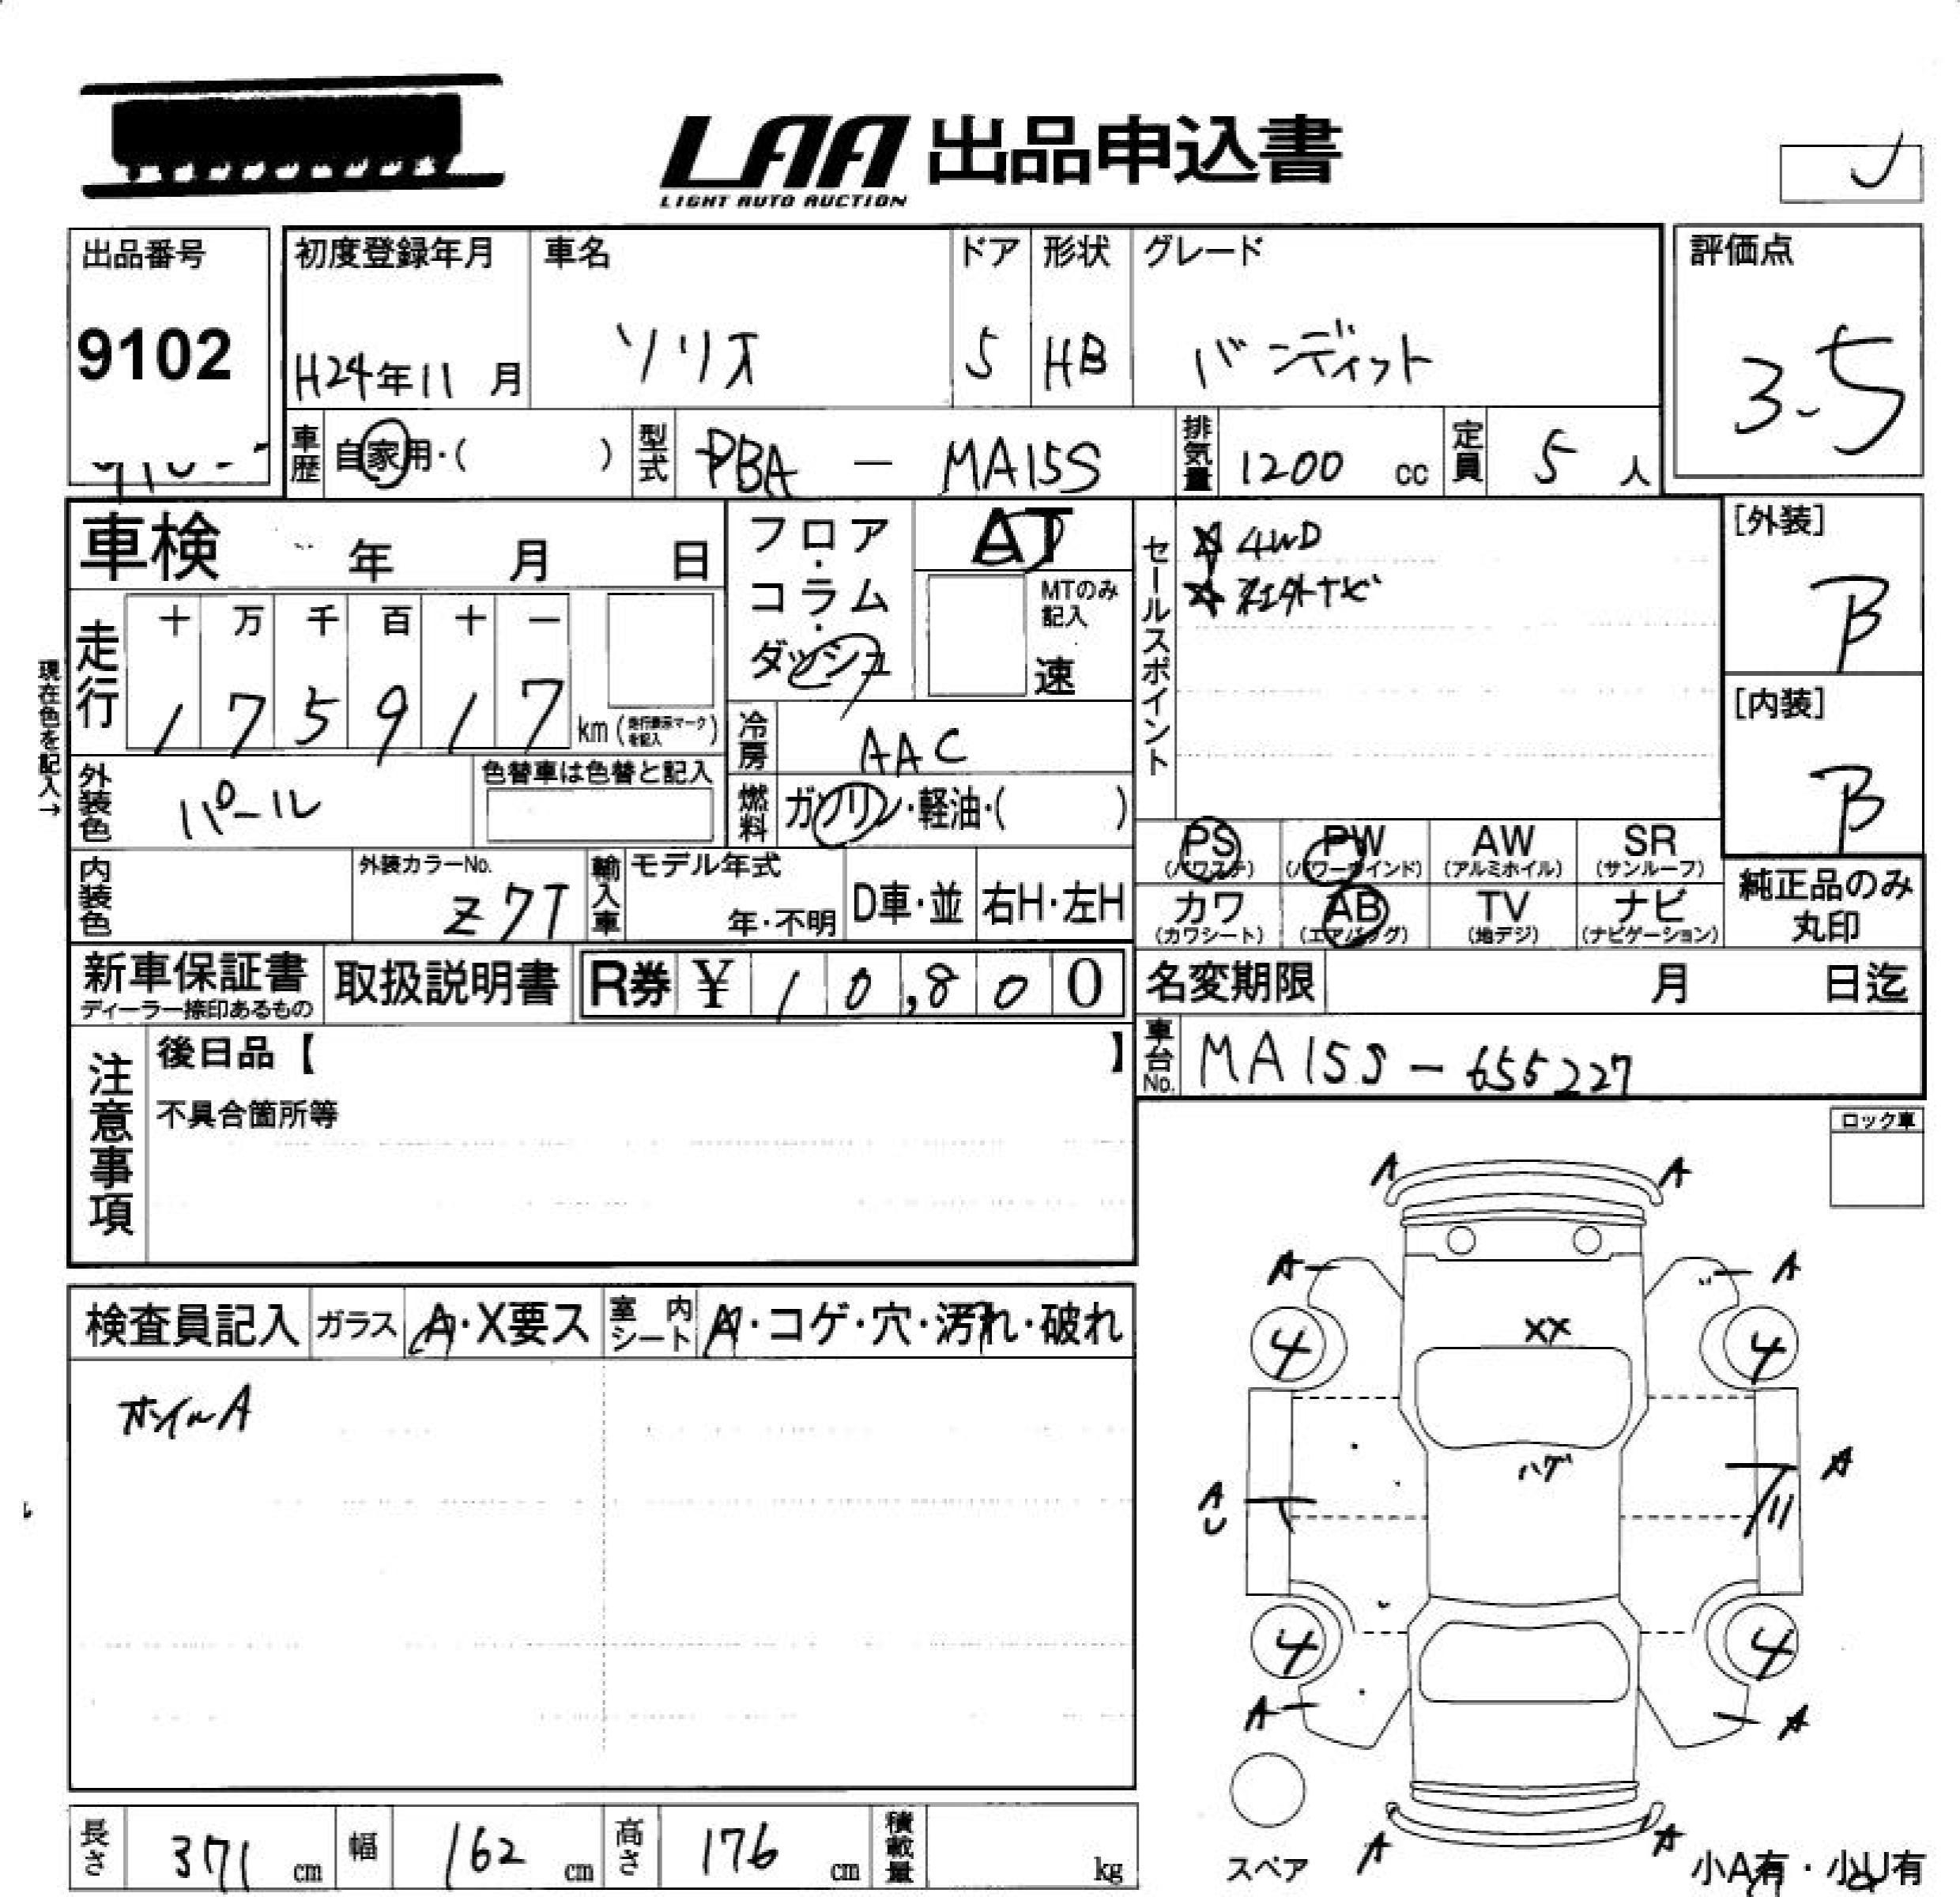 LAA 出品申込書
LIGHT AUTO AUCTION
出品番号
9102
初度登録年月
H24年11月
車名
ソリオ
ドア
5
形状
HB
グレード
バンディット
評価点
3.5
車歴
自家用・( )
型式
PBA - MA15S
排気量
1200 cc
定員
5 人
車検 年 月 日
フロア・コラム・ダッシュ
AT
MTのみ記入
速
セールスポイント
☆ 4WD
☆ 社外ナビ
[外装]
B
[内装]
B
現在色を記入→
走行
十 万 千 百 十 一
1 7 5 9 1 7 km (走行表示マークを記入)
冷房
AAC
外装色
パール
色替車は色替と記入
燃料
ガソリン・軽油・( )
PS
(パワステ)
PW
(パワーウインド)
AW
(アルミホイル)
SR
(サンルーフ)
カワ
(カワシート)
AB
(エアバッグ)
TV
(地デジ)
ナビ
(ナビゲーション)
純正品のみ
丸印
内装色
外装カラーNo.
Z7T
輸入車
モデル年式
年・不明
D車・並
右H・左H
新車保証書
ディーラー捺印あるもの
取扱説明書
R券 ¥ 10,800
名変期限 月 日迄
車台No.
MA15S - 655227
注意事項
後日品【 】
不具合箇所等
ロック車
検査員記入
ガラス
A・X要ス
室内シート
A・コゲ・穴・汚れ・破れ
ホイルA
A A
A A
XX
4 4
ハゲ
A
A
U
4 4
A A
A A
スペア
小A有・小U有
長さ
371 cm
幅
162 cm
高さ
176 cm
積載量
kg